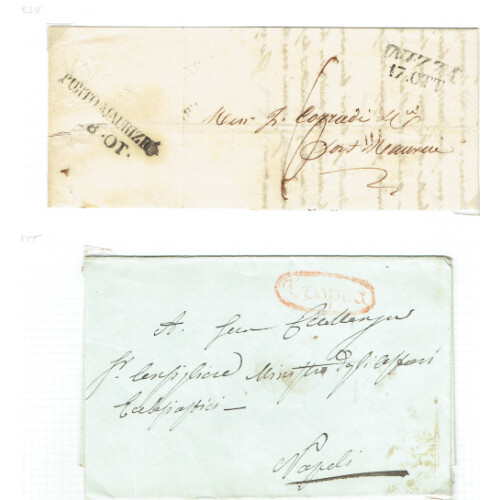 838
PORTO MAURIZIO
8. OT.
NIZZA
17. OTT.
Mess. J. Corradi &
Port Maurice
Tropea
A Sua Eccellenza
Consigliere Ministro degli affari
Ecclesiastici
Napoli